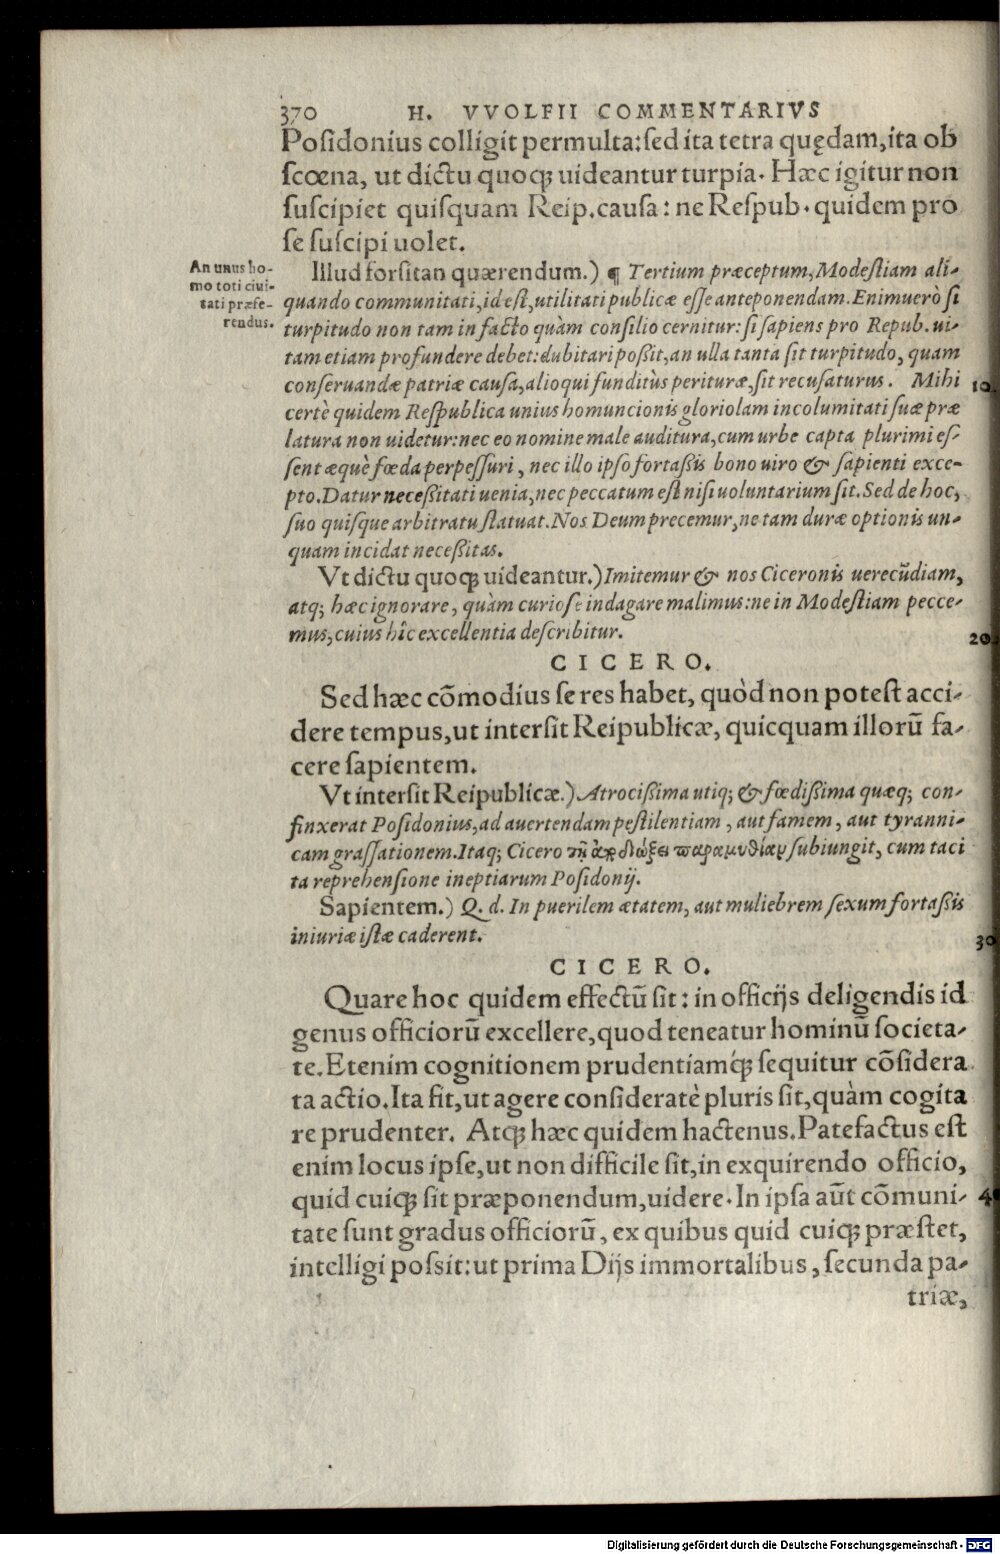 370 H. VVOLFII COMMENTARIVS
Posidonius colligit permulta: sed ita tetra quędam, ita ob
scœna, ut dictu quoqꝫ uideantur turpia. Hæc igitur non
suscipiet quisquam Reip. causa: ne Respub. quidem pro
se suscipi uolet.
An unus ho-
mo toti ciui-
tati præfe-
rendus.
Illud forsitan quærendum.) ¶ Tertium præceptum, Modestiam ali-
quando communitati, id est, utilitati publicæ esse anteponendam. Enimuerò si
turpitudo non tam in facto quàm consilio cernitur: si sapiens pro Repub. ui-
tam etiam profundere debet: dubitari poßit, an ulla tanta sit turpitudo, quam
conseruandæ patriæ causa, alioqui funditùs perituræ, sit recusaturus. Mihi 10
certè quidem Respublica unius homuncionis gloriolam incolumitati suæ præ
latura non uidetur: nec eo nomine male auditura, cum urbe capta plurimi es-
sent æquè fœda perpessuri, nec illo ipso fortaßis bono uiro & sapienti exce-
pto. Datur neceßitati uenia, nec peccatum est nisi uoluntarium sit. Sed de hoc,
suo quisque arbitratu statuat. Nos Deum precemur, ne tam duræ optionis un-
quam incidat neceßitas.
Vt dictu quoqꝫ uideantur.) Imitemur & nos Ciceronis uerecūdiam,
atq; hæc ignorare, quàm curiose indagare malimus: ne in Modestiam pecce-
mus, cuius hîc excellentia describitur. 20
CICERO.
Sed hæc cōmodius se res habet, quòd non potest acci-
dere tempus, ut intersit Reipublicæ, quicquam illorū fa-
cere sapientem.
Vt intersit Reipublicæ.) Atrocißima utiq; & fœdißima quæq; con-
finxerat Posidonius, ad auertendam pestilentiam, aut famem, aut tyranni-
cam grassationem. Itaq; Cicero παραμυθίαν subiungit, cum taci
ta reprehensione ineptiarum Posidonij.
Sapientem.) Q. d. In puerilem ætatem, aut muliebrem sexum fortaßis
iniuriæ istæ caderent. 30
CICERO.
Quare hoc quidem effectū sit: in officijs deligendis id
genus officiorū excellere, quod teneatur hominū societa-
te. Etenim cognitionem prudentiamq́ꝫ sequitur cōsidera
ta actio. Ita fit, ut agere consideratè pluris sit, quàm cogita
re prudenter. Atqꝫ hæc quidem hactenus. Patefactus est
enim locus ipse, ut non difficile sit, in exquirendo officio,
quid cuiqꝫ sit præponendum, uidere. In ipsa aūt cōmuni- 4
tate sunt gradus officiorū, ex quibus quid cuiqꝫ præstet,
intelligi possit: ut prima Dijs immortalibus, secunda pa-
triæ,
Digitalisierung gefördert durch die Deutsche Forschungsgemeinschaft - DFG